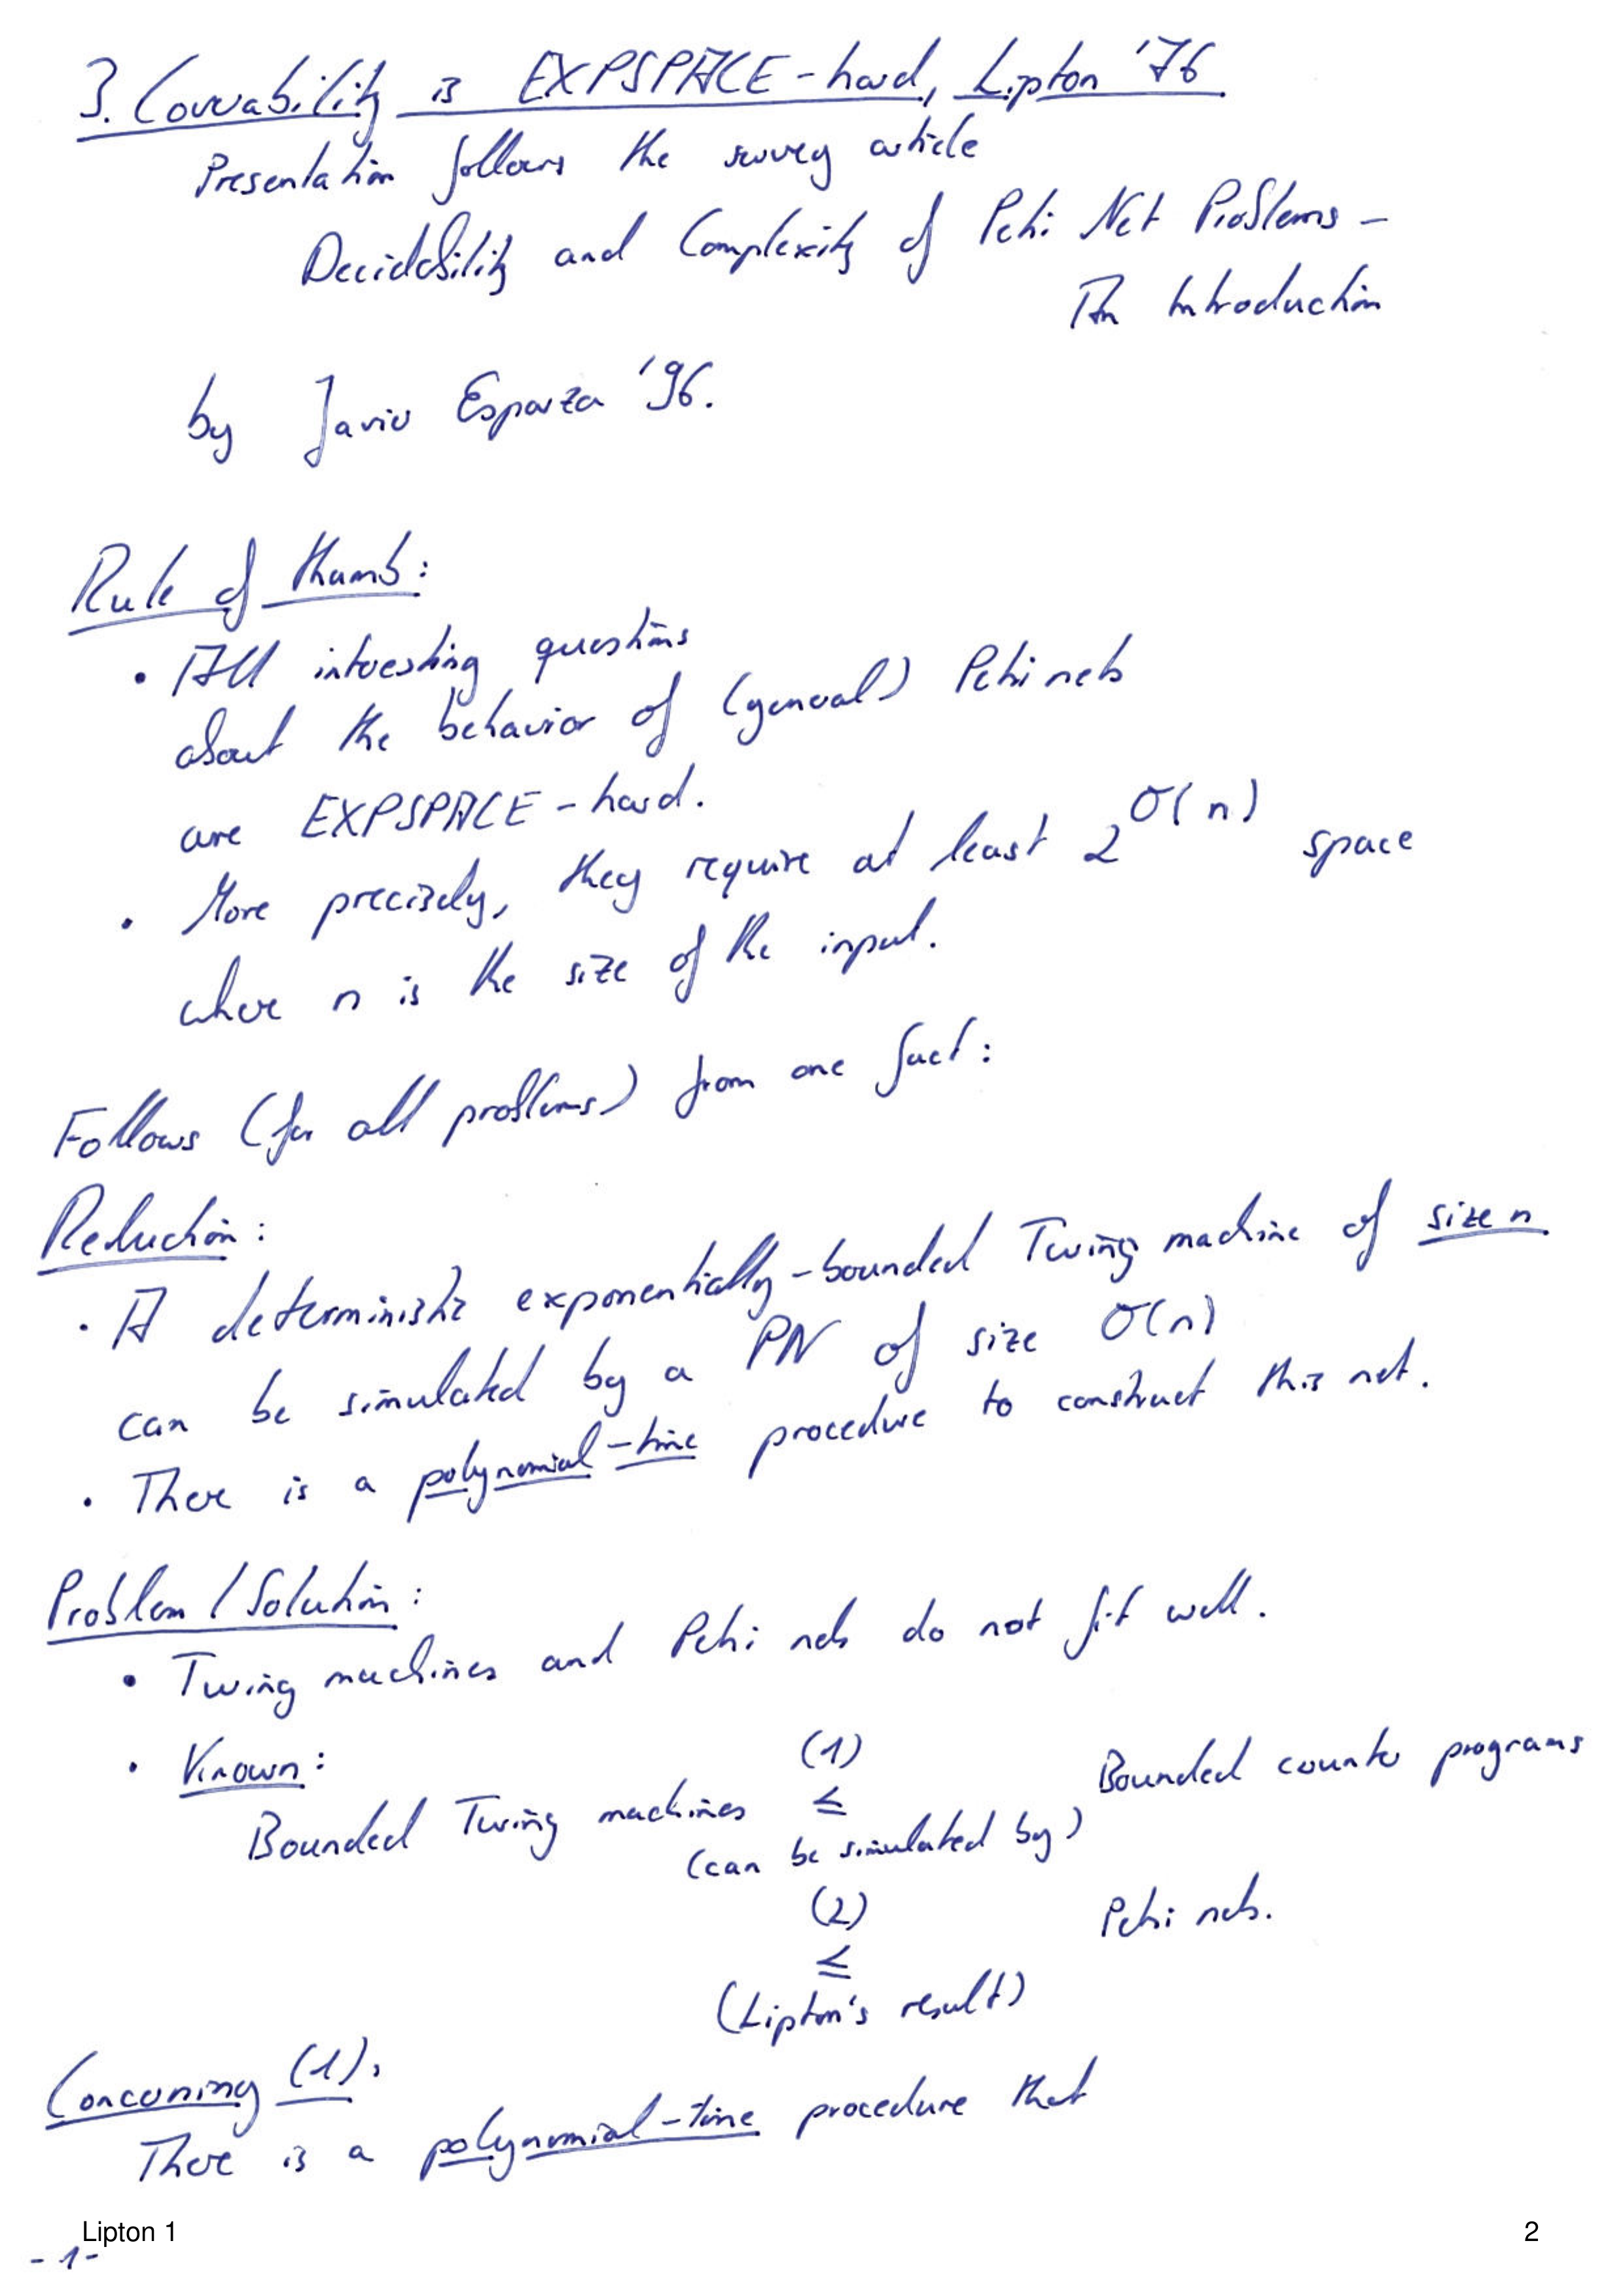 3. Coverability is EXPSPACE-hard, Lipton '76
Presentation follows the survey article
Decidability and Complexity of Petri Net Problems -
An Introduction
by Javier Esparza '96.
Rule of thumb:
• All interesting questions
about the behavior of (general) Petri nets
are EXPSPACE-hard.
• More precisely, they require at least 2^O(n) space
where n is the size of the input.
Follows (for all problems) from one fact:
Reduction:
• A deterministic exponentially-bounded Turing machine of size n
can be simulated by a PN of size O(n)
• There is a polynomial-time procedure to construct this net.
Problem / Solution:
• Turing machines and Petri nets do not fit well.
• Known:
(1)
Bounded Turing machines ≤ Bounded counter programs
(can be simulated by)
(2)
≤ Petri nets.
(Lipton's result)
Concerning (1):
There is a polynomial-time procedure that
Lipton 1
2
-1-